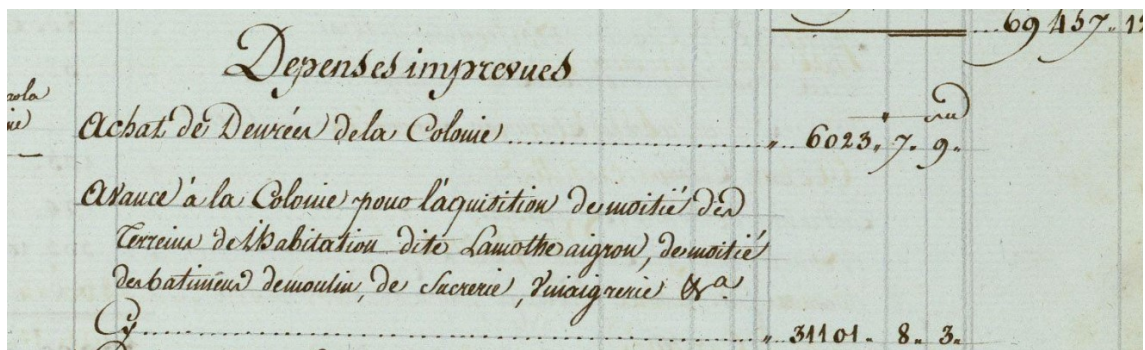 69457. 12
Depenses imprevues
Achat de Denrées de la Colonie .......... " 6023. 7. 9.
Avance à la Colonie pour l'aquisition de moitié des
Terreins de l'habitation dite Lamothe aigron, de moitié
des batimens de moulin, de Sucrerie, Vinaigrerie &a.
Cy .......... " 31101. 8. 3.